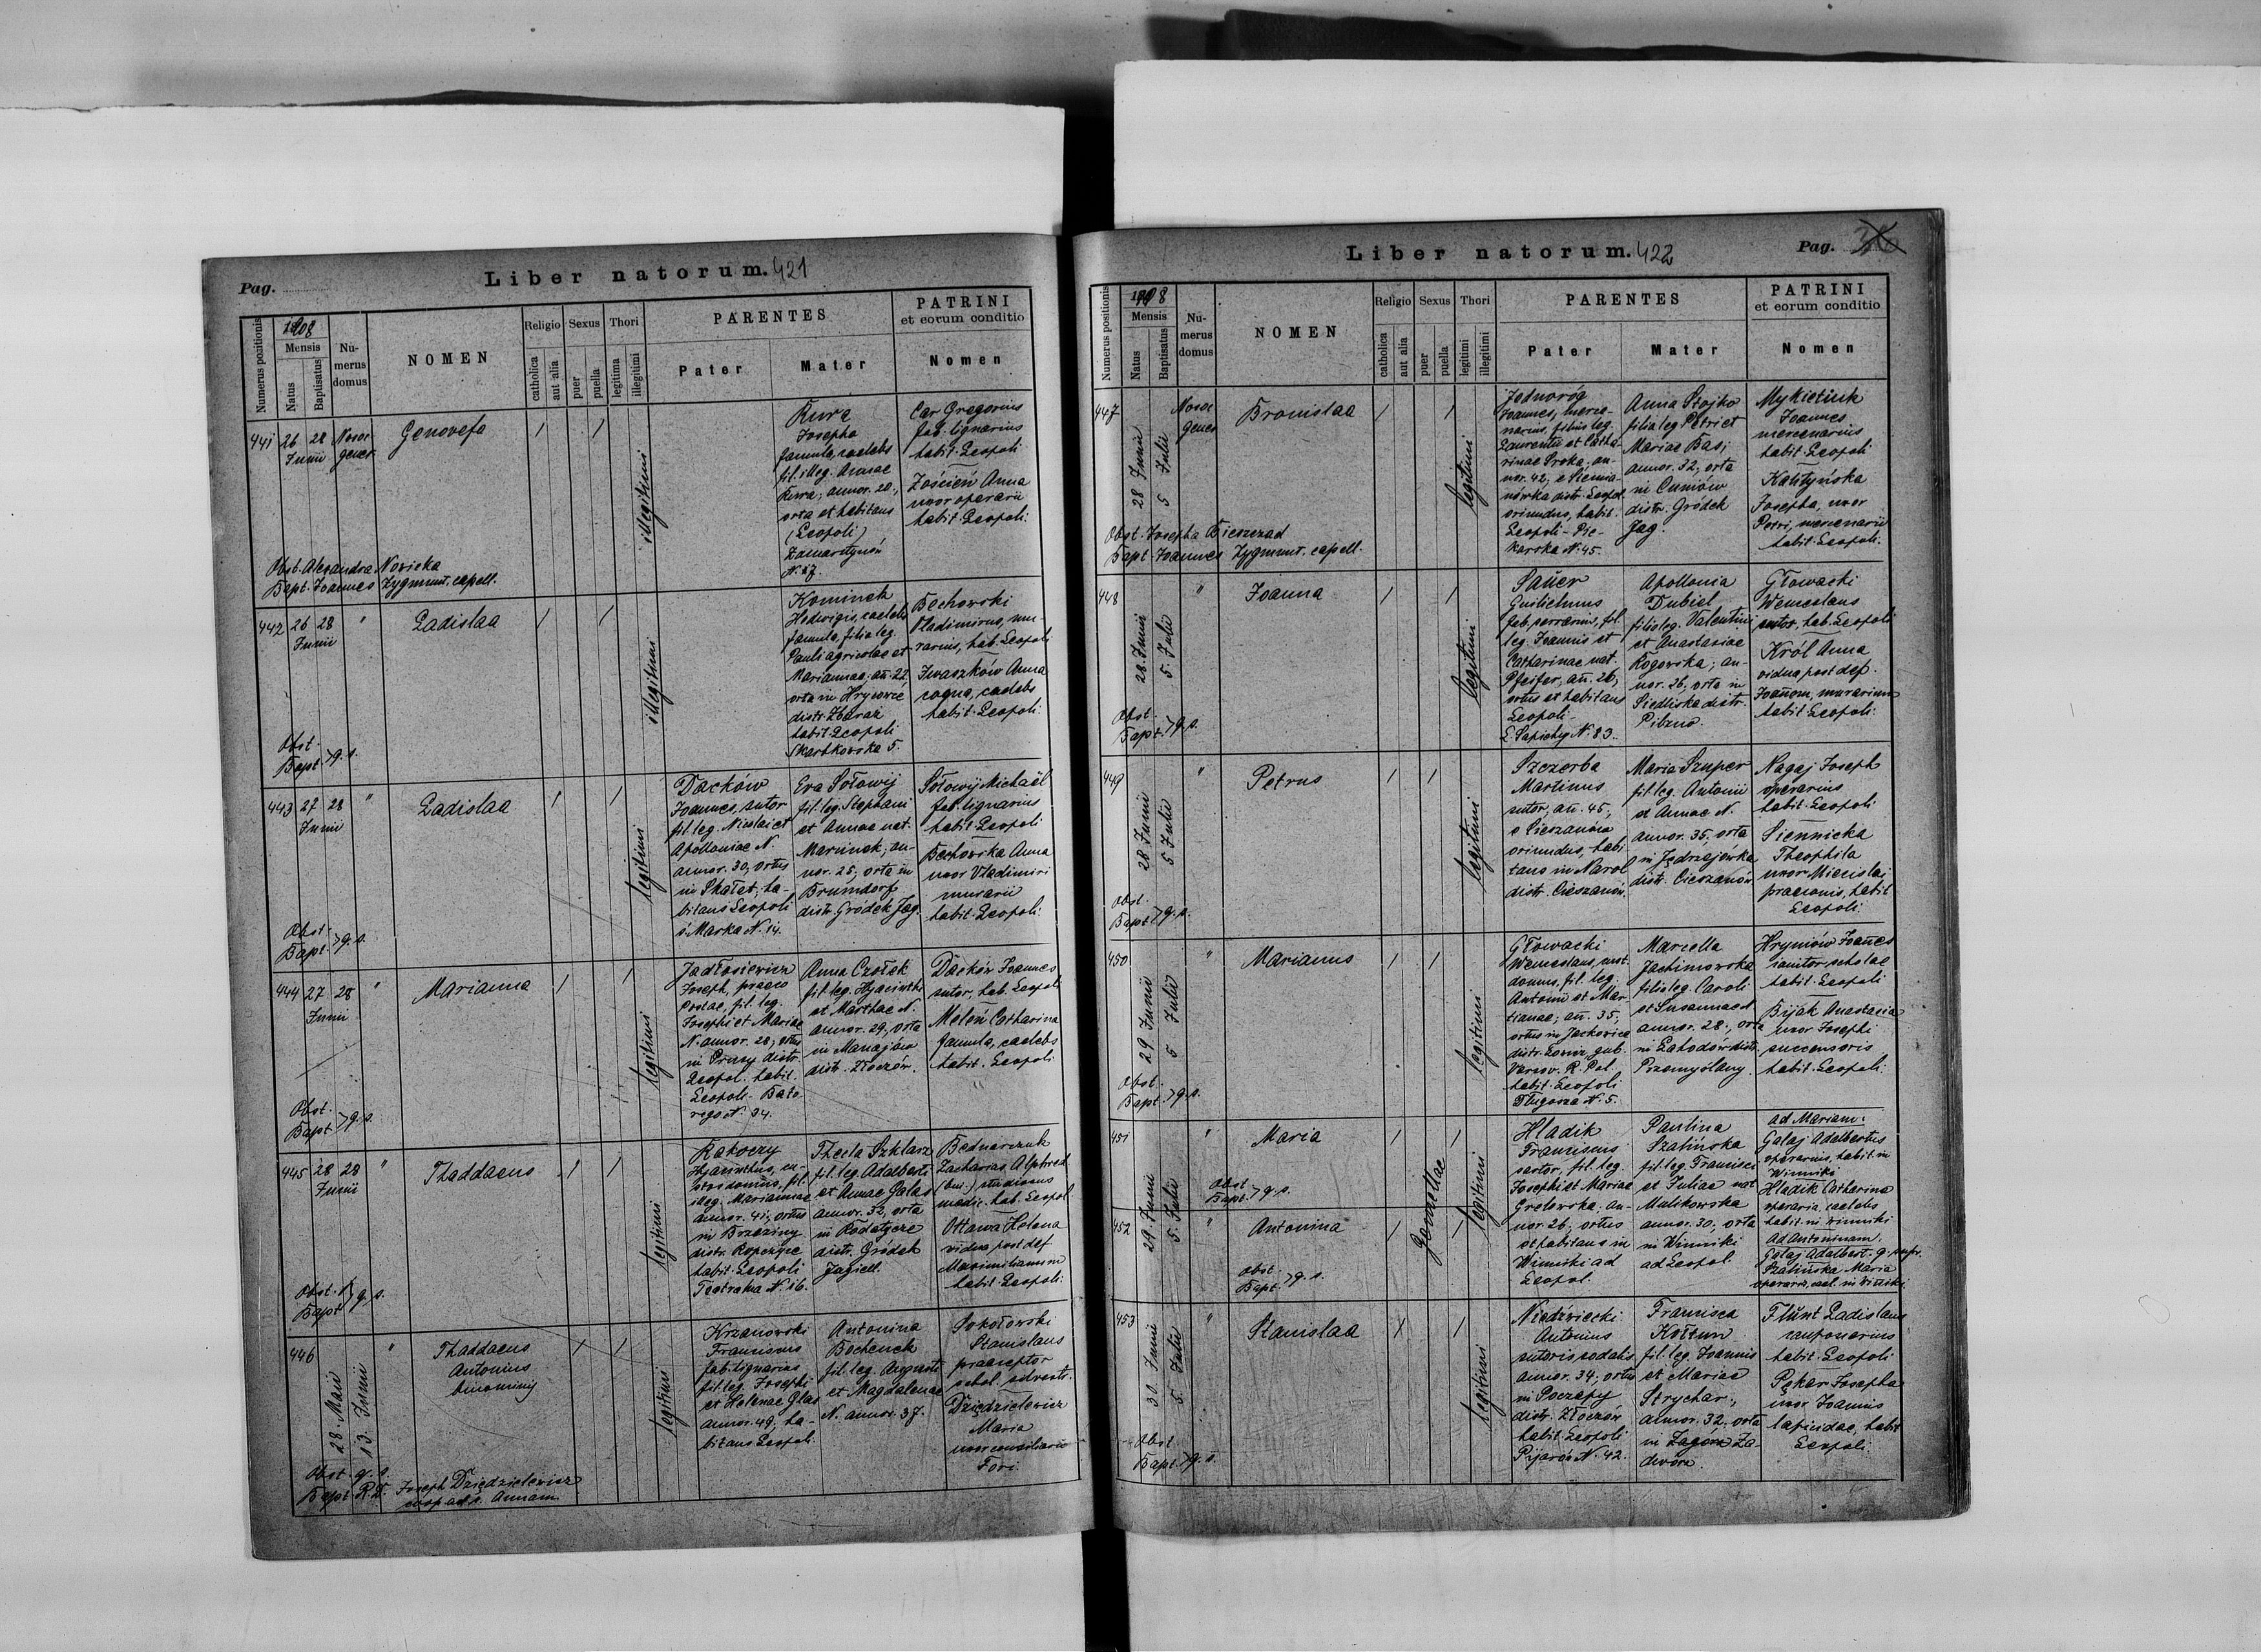 Pag.
Liber natorum. 421
Numerus positionis
1908
Mensis
Natus
Baptisatus
Numerus domus
NOMEN
Religio
catholica
aut alia
Sexus
puer
puella
Thori
legitima
illegitimi
PARENTES
Pater
Mater
PATRINI
et eorum conditio
Nomen
441
26 28
Junii
Nosocgener.
Genovefa
illegitimi
Kura
Josepha
famula, caelebs
fil. illeg. Annae
Kura, annor. 20,
orta et habitans
(Leopoli)
Zamarstynów
N. 27.
Car Gregorius
fab. lignarius
habit. Leopoli
Anna
uxor operarii
habit. Leopoli.
Obst. Alexandra Nowicka
Bapt. Joannes Zygmunt, capell.
442
26 28
Junii
"
Ladislaa
illegitimi
Kominek
Hedvigis, caelebs
famula, filia leg.
Pauli agricolae et
Mariannae, añ. 22,
orta in Hrycowce
distr. Zbaraz
habit. Leopoli
Skarbkowska 5.
Bechowski
Vladimirus, murarius, hab. Leopoli
Iwaszków Anna
coqua, caelebs
habit. Leopoli.
Obst.
Bapt. > q. s.
443
27 28
Junii
"
Ladislaa
legitimi
Dacków
Joannes, sutor
fil. leg. Nicolai et
Apolloniae N.
annor. 30, ortus
in Skałat, habitans Leopoli
s. Marka N. 14.
Eva Sołowij
fil. leg. Stephani
et Annae nat.
Marunek, annor. 25, orta in
Brumdorf
distr. Gródek Jag.
Sołowij Michaël
fab. lignarius
habit. Leopoli
Bechowska Anna
uxor Vladimiri
murarii
habit. Leopoli.
Obst.
Bapt. > q. s.
444
27 28
Junii
"
Marianna
legitimi
Jadłosiewicz
Joseph, praeco
fil. leg.
Josephi et Mariae
N. annor. 28, ortus
in Prusy distr.
Leopol. habit.
Leopoli - Batorego N. 34.
Anna Czołek
fil. leg. Hyacinthi
et Marthae N.
annor. 29, orta
in Manajów
distr. Złoczów.
Dacków Joannes
sutor, hab. Leopoli
Meleń Catharina
famula, caelebs
habit. Leopoli.
Obst.
Bapt. > q. s.
445
28 28
Junii
"
Thaddaeus
legitimi
Rakoczy
Hyacinthus, custos domus, fil.
illeg. Mariannae
annor. 41, ortus
in Brzeziny
distr. Ropczyce
habit. Leopoli
Teatralna N. 26.
Thecla Szklarz
fil. leg. Adalberti
et Annae Galas
annor. 32, orta
in Rodatycze
distr. Gródek
Jagiell.
Bednarczuk
Zacharias Alphred
(bin.) studiosus
medic. hab. Leopol.
Ottawa Helena
vidua post def.
Maximilianum
habit. Leopoli.
Obst.
Bapt. > q. s.
446
28. Maii
13. Junii
"
Thaddaeus
Antonius
binominis
legitimi
Krzanowski
Franciscus
fab. lignarius
fil. leg. Josephi
et Helenae Glas
annor. 49, habitans Leopoli.
Antonina
Bochenek
fil. leg. Augusti
et Magdalenae
N. annor. 37.
Sokołowski
Stanislaus
praeceptor
schol.
DzięDzielewicz
Maria
uxor consiliarii
Fori.
Obst. q. s.
Bapt. R. D. Joseph DzięDzielewicz
coop. ad s. Annam.
Liber natorum. 422
Pag.
Numerus positionis
1908
Mensis
Natus
Baptisatus
Numerus domus
NOMEN
Religio
catholica
aut alia
Sexus
puer
puella
Thori
legitimi
illegitimi
PARENTES
Pater
Mater
PATRINI
et eorum conditio
Nomen
447
28 Junii
5 Julii
Nosocgener
Bronislaa
legitimi
Jednoróg
Joannes, mercenarius, filius leg.
Laurentii et Catharinae Sroka, annor. 42, e Siemianówka distr. Leopol.
oriundus, habit.
Leopoli - Piekarska N. 45.
Anna Stojko
filia leg. Petri et
Mariae Bas,
annor. 32, orta
in Cuniów
distr. Gródek
Jag.
Mykietiuk
Joannes
mercenarius
habit. Leopoli
Kalityńska
Josepha, uxor
Petri, mercenarii
habit. Leopoli.
Obst. Josepha Bieszczad
Bapt. Joannes Zygmunt, capell.
448
28. Junii
5. Julii
"
Joanna
legitimi
Sauer
Guilielmus
fab. ferrarius, fil.
leg. Joannis et
Catharinae nat.
Pfeifer, añ. 26,
ortus et habitans
Leopoli -
L. Sapiehy N. 83.
Apollonia
Dubiel
filia leg. Valentini
et Anastasiae
Rogowska, annor. 26, orta in
Siedliska distr.
Pilzno.
Głowacki
Wenceslaus
custos, hab. Leopoli
Król Anna
vidua post def.
Joannem, murarium
habit. Leopoli.
Obst.
Bapt. > q. s.
449
28 Junii
5 Julii
"
Petrus
legitimi
Szczerba
Martinus
sutor, añ. 45,
e Cieszanów
oriundus, habitans in Narol
distr. Cieszanów.
Maria Szuper
fil. leg. Antonii
et Annae N.
annor. 35, orta
in Jędrzejówka
distr. Cieszanów
Nagaj Joseph
operarius
habit. Leopoli
Siennicka
Theophila
uxor Miecislai
praeconis, habit.
Leopoli.
Obst.
Bapt. > q. s.
450
29 Junii
5 Julii
"
Marianus
legitimi
Głowacki
Wenceslaus, cust.
domus, fil. leg.
Antonii et Martianae, añ. 35,
ortus in Jackowice
distr. Łowicz, gub.
Varsov. R. Pol.
habit. Leopoli
Długosza N. 5.
Marcella
Jachimowska
filia leg. Caroli
et Susannae N.
annor. 28, orta
in Lahodów distr.
Przemyślany.
Hryniów Joañes
ianitor scholae
habit. Leopoli
Bijak Anastasia
uxor Josephi
successoris
habit. Leopoli.
Obst.
Bapt. > q. s.
451
29. Junii
5. Julii
"
Maria
Gemellae
legitimi
Hladik
Franciscus
sartor, fil. leg.
Josephi et Mariae
Grelowska, annor. 26, ortus
et habitans in
Winniki ad
Leopol.
Paulina
Szalińska
fil. leg. Francisci
et Juliae nat.
Malikowska
annor. 30, orta
in Winniki
ad Leopol.
ad Mariam:
Galaj Adalbertus
operarius, habit. in
Winniki
Hladik Catharina
operaria, caelebs
habit. in Winniki
ad Antoninam.
Galaj Adalbert. q. supr.
Szalińska Maria
operaria, cael. in Winniki
Obst.
Bapt. > q. s.
452
"
Antonina
Obst.
Bapt. > q. s.
453
30. Junii
5. Julii
"
Stanislaa
legitimi
Niedźwiecki
Antonius
sutoris sodalis
annor. 34, ortus
in Poczapy
distr. Złoczów
habit. Leopoli
Pijarów N. 42.
Francisca
Kołtun
fil. leg. Joannis
et Mariae
Strychar,
annor. 32, orta
in Zagórze Zadwórze.
Flunt Ladislaus
cauponarius
habit. Leopoli
Pękar Josepha
uxor Joannis
lapicidae, habit.
Leopoli.
Obst.
Bapt. > q. s.